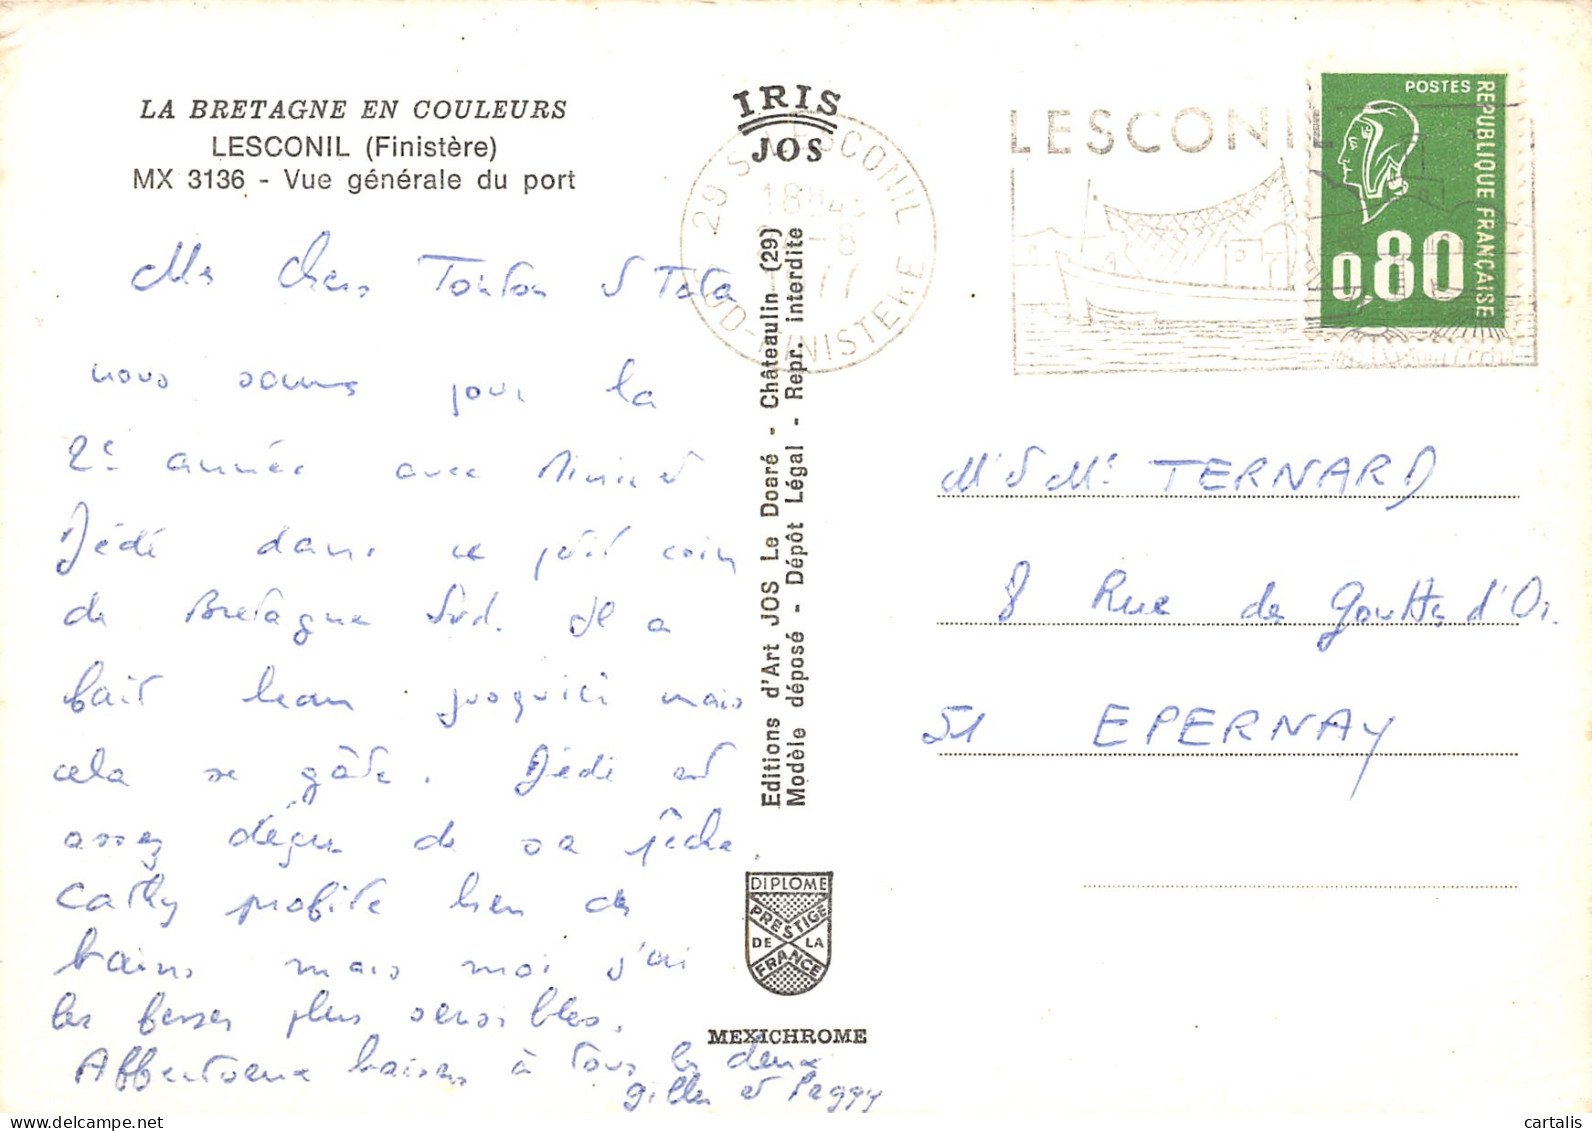 LA BRETAGNE EN COULEURS
LESCONIL (Finistère)
MX 3136 - Vue générale du port
Mes chers Tonton et Tata
nous sommes pour la
2e année avec Mimi et
Dédé dans ce petit coin
de Bretagne Sud. Il a
fait beau jusqu'ici mais
cela se gâte. Dédé est
assez déçu de sa pêche.
Cathy profite bien des
bains mais moi j'ai
les fesses plus sensibles.
Affectueux baisers à tous les deux
Gilles et Peggy
IRIS
JOS
Editions d'Art JOS Le Doaré - Châteaulin (29)
Modèle déposé - Dépôt Légal - Repr. interdite
DIPLOME
PRESTIGE
DE LA
FRANCE
MEXICHROME
29 LESCONIL
18H45
-8
77
SUD-FINISTERE
LESCONIL
POSTES
REPUBLIQUE FRANÇAISE
0,80
Mr et Me TERNARD
8 Rue des Gouttes d'Or
51 EPERNAY
cartalis
www.delcampe.net